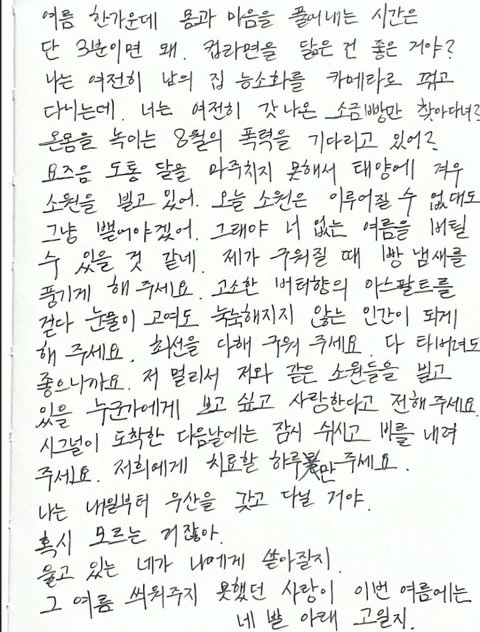 여름 한가운데 몸과 마음을 풀어내는 시간은
단 3분이면 돼. 컵라면을 닮은 건 좋은 거야?
나는 여전히 남의 집 능소화를 카메라로 꺾고
다니는데. 너는 여전히 갓 나온 소금빵만 찾아다녀?
온몸을 녹이는 8월의 폭력을 기다리고 있어?
요즈음 도통 달을 마주치지 못해서 태양에 겨우
소원을 빌고 있어. 오늘 소원은 이루어질 수 없대도
그냥 뱉어야겠어. 그래야 너 없는 여름을 버틸
수 있을 것 같네. 제가 구워질 때 빵 냄새를
풍기게 해 주세요. 고소한 버터향의 아스팔트를
걷다 눈물이 고여도 눅눅해지지 않는 인간이 되게
해 주세요. 최선을 다해 구워 주세요. 다 타버려도
좋으니까요. 저 멀리서 저와 같은 소원들을 빌고
있을 누군가에게 보고 싶고 사랑한다고 전해주세요.
시그널이 도착한 다음날에는 잠시 쉬시고 비를 내려
주세요. 저희에게 치료할 하루만 주세요.
나는 내일부터 우산을 갖고 다닐 거야.
혹시 모르는 거잖아.
울고 있는 네가 나에게 쏟아질지.
그 여름 씌워주지 못했던 사랑이 이번 여름에는
네 발 아래 고일지.